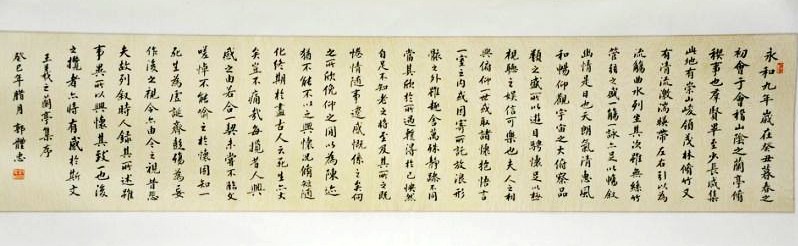 永和九年歲在癸丑暮春之
初會于會稽山陰之蘭亭脩
稧事也群賢畢至少長咸集
此地有崇山峻領茂林脩竹又
有清流激湍暎帶左右引以為
流觴曲水列坐其次雖無絲竹
管弦之盛一觴一詠亦足以暢敘
幽情是日也天朗氣清惠風
和暢仰觀宇宙之大俯察品
類之盛所以遊目騁懷足以極
視聽之娛信可樂也夫人之相
與俯仰一世或取諸懷抱悟言
一室之内或因寄所託放浪形
骸之外雖趣舍萬殊靜躁不同
當其欣於所遇暫得於己怏然
自足不知老之將至及其所之既
惓情隨事遷感慨係之矣向
之所欣俛仰之間以為陳迹
猶不能不以之興懷況脩短隨
化終期於盡古人云死生亦大
矣豈不痛哉每攬昔人興
感之由若合一契未嘗不臨文
嗟悼不能喻之於懷固知一
死生為虛誕齊彭殤為妄
作後之視今亦由今之視昔悲
夫故列敘時人錄其所述雖
事異所以興懷其致一也後
之攬者亦將有感於斯文
王羲之蘭亭集序
癸巳年腊月 郭體忠